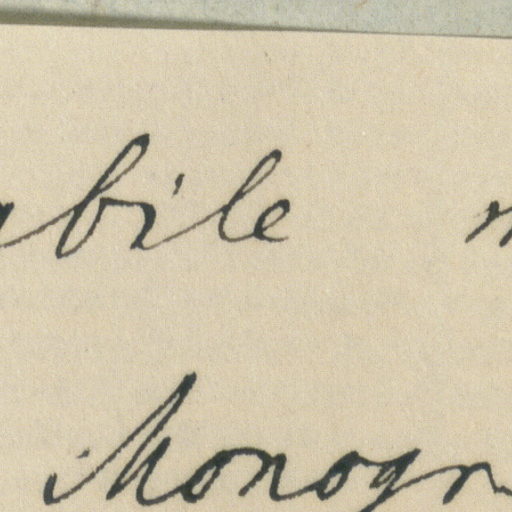 abile
Monogr